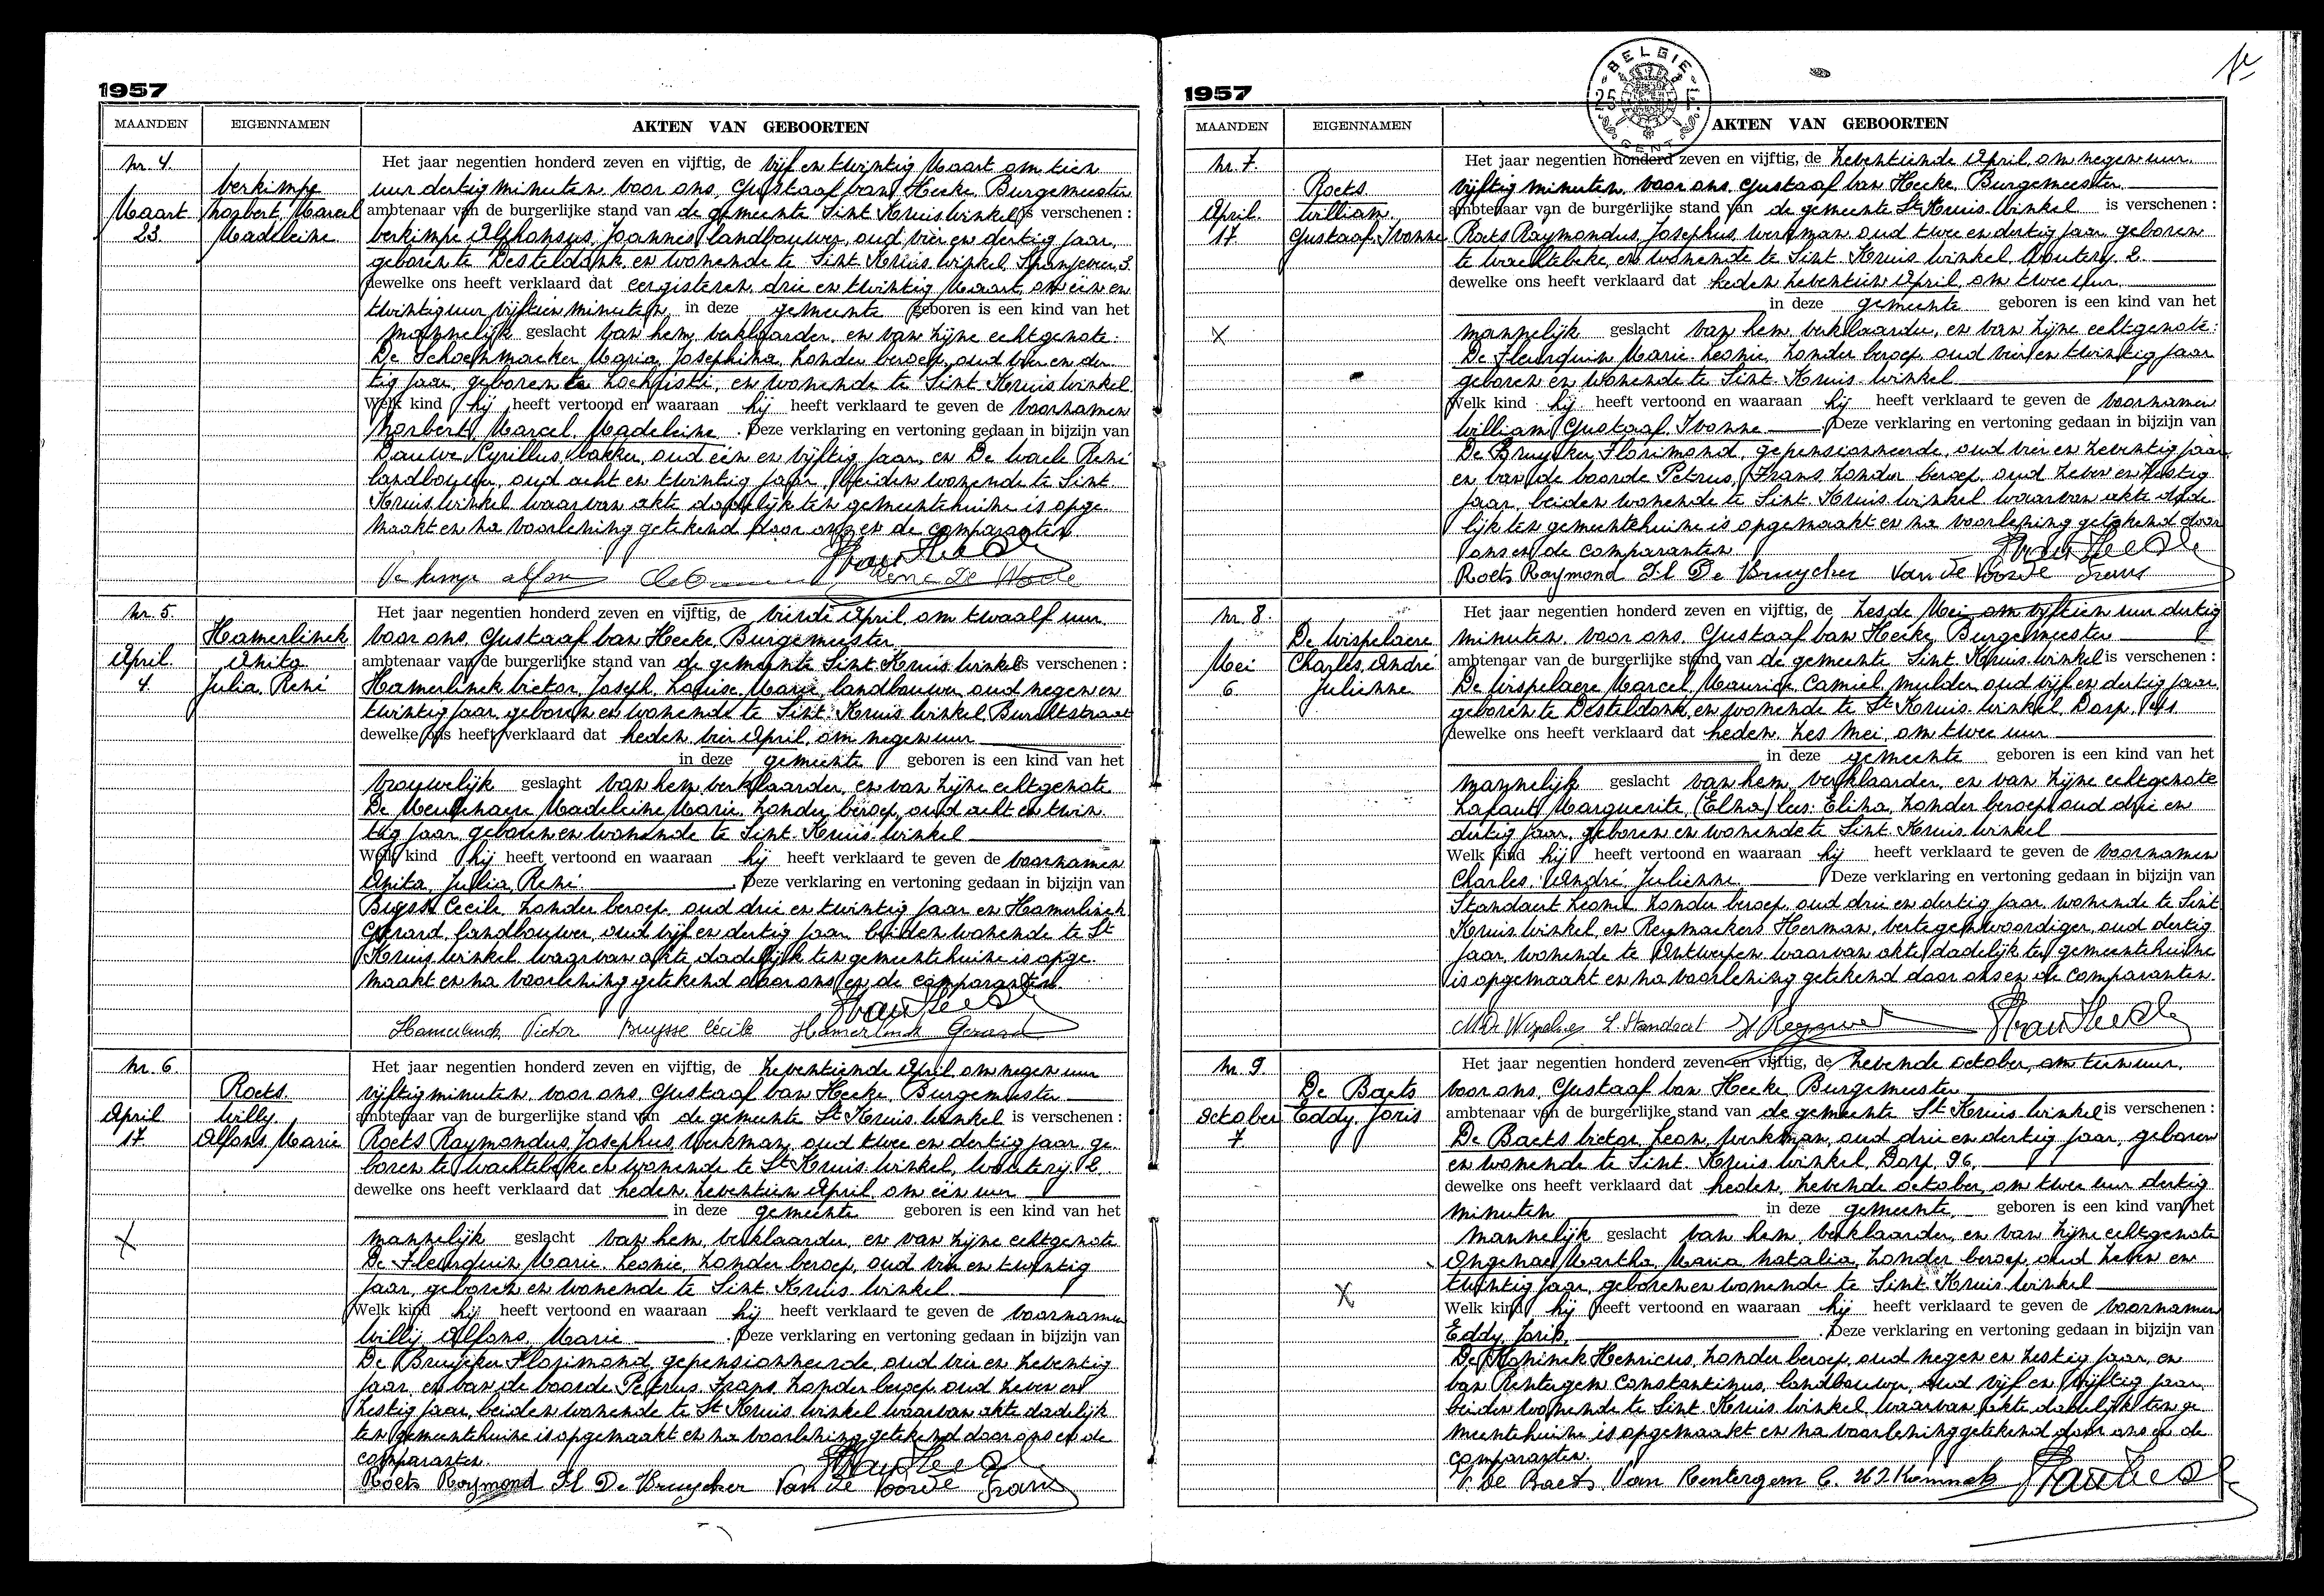 1957
MAANDEN EIGENNAMEN AKTEN VAN GEBOORTEN
Nr. 4.
Verkimpe
Maart Norbert, Marcel
23. Madeleine
Het jaar negentien honderd zeven en vijftig, de vijf en twintig Maart om tien
uur dertig minuten voor ons, Gustaaf Van Hecke, Burgemeester
ambtenaar van de burgerlijke stand van de gemeente Sint Kruis Winkel is verschenen :
Verkimpe Alphonsus, Joannes, landbouwer, oud vier en dertig jaar,
geboren te Desteldonk, en wonende te Sint Kruis Winkel, 3.
dewelke ons heeft verklaard dat eergisteren, drie en twintig Maart, om één en
twintig uur vijftien minuten in deze gemeente geboren is een kind van het
mannelijk geslacht van hem, verklaarder, en van zijne echtgenote:
De Schoenmaeker Maria, Josephina, zonder beroep, oud vier en der
tig jaar, geboren te Lochristi, en wonende te Sint Kruis Winkel
Welk kind hij heeft vertoond en waaraan hij heeft verklaard te geven de voornamen
Norbert, Marcel, Madeleine. Deze verklaring en vertoning gedaan in bijzijn van
Dauwe Cyrillus, bakker, oud één en vijftig jaar, en De Waele René
landbouwer, oud acht en twintig jaar, beiden wonende te Sint
Kruis Winkel waarvan akte dadelijk ten gemeentehuize is opge
maakt en na voorlezing getekend door ons en de comparanten
Verkimpe Alfons René De Waele
Nr. 5.
Hamerlinck
April. Anita
4. Julia, René
Het jaar negentien honderd zeven en vijftig, de vierde April, om twaalf uur
voor ons, Gustaaf Van Hecke, Burgemeester
ambtenaar van de burgerlijke stand van de gemeente Sint Kruis Winkel is verschenen :
Hamerlinck Victor, Joseph, Louise, Marie, landbouwer, oud negen en
twintig jaar, geboren en wonende te Sint Kruis Winkel, Burchtstraat
dewelke ons heeft verklaard dat heden, vier April, om negen uur
in deze gemeente geboren is een kind van het
vrouwelijk geslacht van hem, verklaarder, en van zijne echtgenote
De Meulenaere Madeleine, Marie, zonder beroep, oud acht en twin
tig jaar, geboren en wonende te Sint Kruis Winkel
Welk kind hij heeft vertoond en waaraan hij heeft verklaard te geven de voornamen
Anita, Julia, René. Deze verklaring en vertoning gedaan in bijzijn van
Buysse Cecile, zonder beroep, oud drie en twintig jaar en Hamerlinck
Gerard, landbouwer, oud vijf en dertig jaar, beiden wonende te St
Kruis Winkel waarvan akte dadelijk ten gemeentehuize is opge
maakt en na voorlezing getekend door ons en de comparanten
Hamerlinck Victor Buysse Cécile Hamerlinck Gerard
Nr. 6.
Roets.
April Willy,
17. Alfons, Marie
Het jaar negentien honderd zeven en vijftig, de zeventiende April om negen uur
vijftig minuten, voor ons, Gustaaf Van Hecke, Burgemeester
ambtenaar van de burgerlijke stand van de gemeente St Kruis Winkel is verschenen :
Roets Raymondus, Josephus, werkman, oud twee en dertig jaar, ge
boren te Wachtebeke en wonende te St Kruis Winkel, Wouterij, 2.
dewelke ons heeft verklaard dat heden, zeventien April, om één uur
in deze gemeente geboren is een kind van het
X
mannelijk geslacht van hem, verklaarder, en van zijne echtgenote
De Fleurquin Marie, Leonie, zonder beroep, oud vier en twintig
jaar, geboren en wonende te Sint Kruis Winkel
Welk kind hij heeft vertoond en waaraan hij heeft verklaard te geven de voornamen
Willy, Alfons, Marie. Deze verklaring en vertoning gedaan in bijzijn van
De Bruycker Florimond, gepensionneerde, oud vier en zeventig
jaar, en Van de Voorde Petrus, Frans, zonder beroep, oud zeven en
zestig jaar, beiden wonende te St Kruis Winkel waarvan akte dadelijk
ten gemeentehuize is opgemaakt en na voorlezing getekend door ons en de
comparanten.
Roets Raymond Fl De Bruycker Van de Voorde Frans
1957
BELGIE 25 F. GENT
MAANDEN EIGENNAMEN AKTEN VAN GEBOORTEN
Nr. 7.
Roets
April. William,
17. Gustaaf, Ivonne
Het jaar negentien honderd zeven en vijftig, de zeventiende April, om negen uur
vijftig minuten, voor ons, Gustaaf Van Hecke, Burgemeester
ambtenaar van de burgerlijke stand van de gemeente St Kruis Winkel is verschenen :
Roets Raymondus, Josephus, werkman, oud twee en dertig jaar, geboren
te Wachtebeke, en wonende te Sint Kruis Winkel, Wouterij, 2.
dewelke ons heeft verklaard dat heden, zeventien April, om twee uur
in deze gemeente geboren is een kind van het
X
mannelijk geslacht van hem, verklaarder, en van zijne echtgenote:
De Fleurquin Marie, Leonie, zonder beroep, oud vier en twintig jaar
geboren en wonende te Sint Kruis Winkel
Welk kind hij heeft vertoond en waaraan hij heeft verklaard te geven de voornamen
William, Gustaaf, Ivonne Deze verklaring en vertoning gedaan in bijzijn van
De Bruycker Florimond, gepensionneerde, oud vier en zeventig jaar
en Van de Voorde Petrus, Frans, zonder beroep, oud zeven en zestig
jaar, beiden wonende te Sint Kruis Winkel waarvan akte dade
lijk ten gemeentehuize is opgemaakt en na voorlezing getekend door
ons en de comparanten
Roets Raymond Fl De Bruycker Van de Voorde Frans
Nr. 8.
De Wispelaere
Mei Charles, André
6 Julienne
Het jaar negentien honderd zeven en vijftig, de zesde Mei om vijftien uur dertig
minuten, voor ons, Gustaaf Van Hecke, Burgemeester
ambtenaar van de burgerlijke stand van de gemeente Sint Kruis Winkel is verschenen :
De Wispelaere Marcel, Maurice, Camiel, mulder, oud vijf en dertig jaar,
geboren te Desteldonk, en wonende te St Kruis Winkel, Dorp,
dewelke ons heeft verklaard dat heden, zes Mei, om twee uur
in deze gemeente geboren is een kind van het
mannelijk geslacht van hem, verklaarder, en van zijne echtgenote
Lafaut Marguerite, (Elna) lees: Elina, zonder beroep, oud drie en
dertig jaar, geboren en wonende te Sint Kruis Winkel
Welk kind hij heeft vertoond en waaraan hij heeft verklaard te geven de voornamen
Charles, André, Julienne. Deze verklaring en vertoning gedaan in bijzijn van
Standaert Leonie, zonder beroep, oud drie en dertig jaar, wonende te Sint
Kruis Winkel, en Reymaekers Herman, vertegenwoordiger, oud dertig
jaar, wonende te Antwerpen waarvan akte dadelijk ten gemeentehuize
is opgemaakt en na voorlezing getekend door ons en de comparanten.
L Standaert
Nr. 9.
De Baets
October Eddy, Joris
7
Het jaar negentien honderd zeven en vijftig, de zevende october, om tien uur,
voor ons, Gustaaf Van Hecke, Burgemeester
ambtenaar van de burgerlijke stand van de gemeente St Kruis Winkel is verschenen :
De Baets Victor, Leon, werkman, oud drie en dertig jaar, geboren
en wonende te Sint Kruis Winkel, Dorp, 96,
dewelke ons heeft verklaard dat heden, zevende october, om twee uur dertig
minuten in deze gemeente, geboren is een kind van het
mannelijk geslacht van hem, verklaarder, en van zijne echtgenote
Ongenae Martha, Maria, Natalia, zonder beroep, oud zeven en
X
twintig jaar, geboren en wonende te Sint Kruis Winkel
Welk kind hij heeft vertoond en waaraan hij heeft verklaard te geven de voornamen
Eddy, Joris, . Deze verklaring en vertoning gedaan in bijzijn van
Henricus, zonder beroep, oud negen en zestig jaar, en
Van Rentergem Constantinus, landbouwer, oud vijf en vijftig jaar
beiden wonende te Sint Kruis Winkel waarvan akte dadelijk ten ge
meentehuize is opgemaakt en na voorlezing getekend door ons en de
comparanten.
V. De Baets Van Rentergem C.